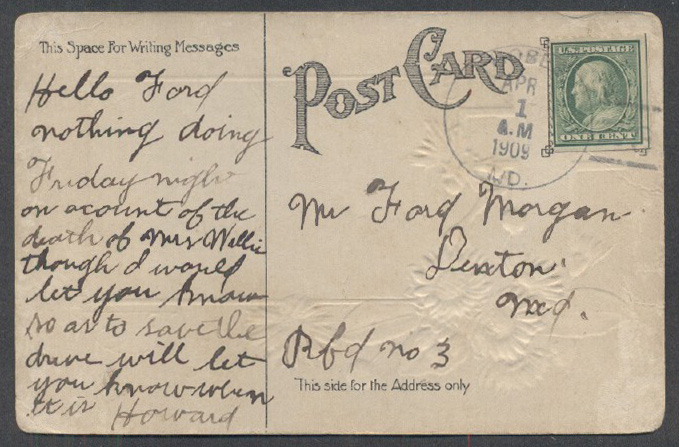 This Space For Writing Messages
Hello Ford
nothing doing
Friday night
on acount of the
death of Mrs Willie
though I would
let you know
so as to save the
drive will let
you know when
it is Howard
POST CARD
APR
1
A.M
1909
MD.
U.S. POSTAGE
ONE CENT
Mr Ford Morgan
Denton
Md.
Rfd no 3
This side for the Address only